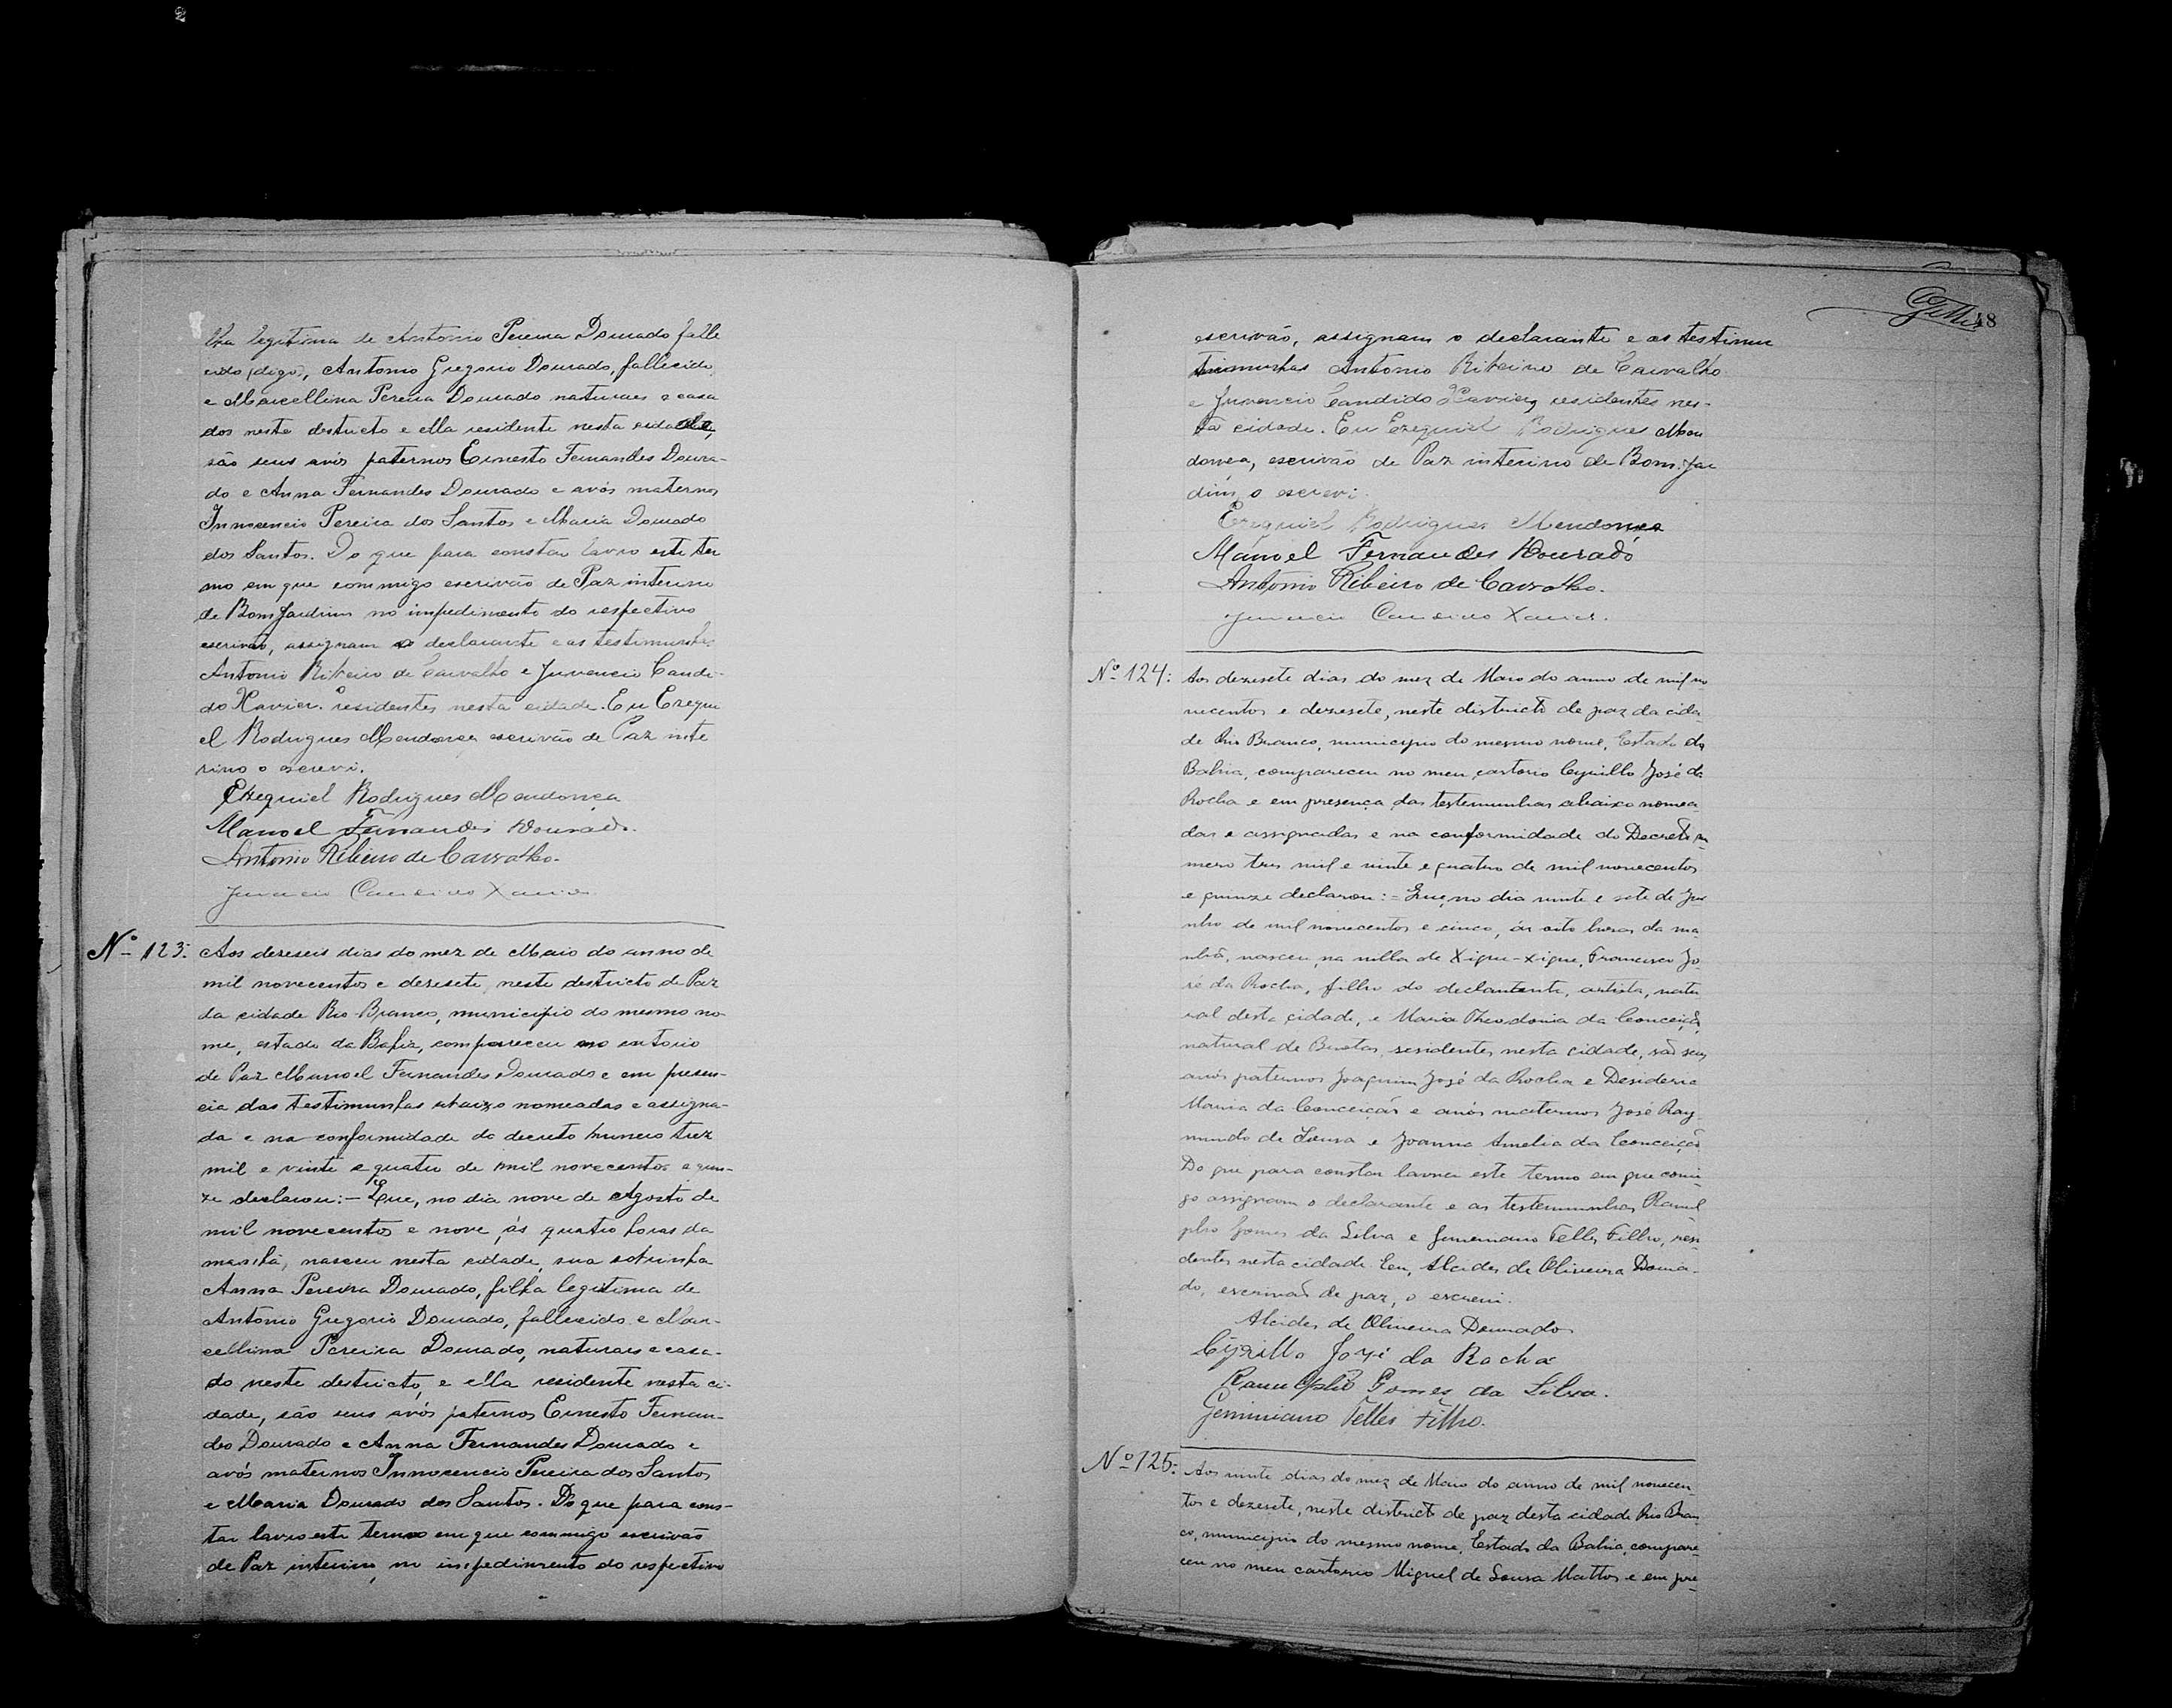 lha legitima de Antonio Pereira Dourado falle
cido (digo), Antonio Gregorio Dourado, fallecido
e Marcellina Pereira Dourado naturaes e casa
dos neste destricto e ella residente nesta cidade,
são seus avós paternos Ernesto Fernandes Doura-
do e Anna Fernandes Dourado e avós maternos
Innocencio Pereira dos Santos e Maria Dourado
dos Santos. Do que para constar lavro este ter
mo em que commigo escrivão de Paz interino
de Bom Jardim no impedimento do respectivo
escrivão, assignam o declarante e as testimunhas
Antonio Ribeiro de Carvalho e Juvencio Candi-
do Xavier. residentes nesta cidade. Eu Ezequi
el Rodrigues Mendonça escrivão de Paz inte
rino o escrevi.
Ezequiel Rodrigues Mendonça
Manoel Fernandes Dourado.
Antonio Ribeiro de Carvalho.
Juvencio Candido Xavier
Nº 123: Aos deseseis dias do mez de Maio do anno de
mil novecentos e desesete, neste destricto de Paz
da cidade Rio-Branco, municipio do mesmo no-
me, estado da Bahia, compareceu no cartorio
de Paz Manoel Fernandes Dourado e em presen-
cia das testimunhas abaixo nomeadas e assigna-
da e na conformidade do decreto numero trez
mil e vinte e quatro de mil novecentos e quin-
ze declarou:- Que, no dia nove de Agosto de
mil novecentos e nove, ás quatro horas da
manhã, nasceu nesta cidade, sua sobrinha
Anna Pereira Dourado, filha legitima de
Antonio Gregorio Dourado, fallecido e Mar-
cellina Pereira Dourado, naturaes e casa-
do neste destricto, e ella residente nesta ci-
dade, são seus avós paternos Ernesto Fernan-
des Dourado e Anna Fernandes Dourado e
avós maternos Innocencio Pereira dos Santos
e Maria Dourado dos Santos. Do que para cons-
tar lavro este termo em que commigo escrivão
de Paz interino, no impedimento do respectivo
48
escrivão, assignam o declarante e as testimu
nhas Antonio Ribeiro de Carvalho
e Juvencio Candido Xavier, residentes nes-
ta cidade. Eu Ezequiel Rodrigues Men
donça, escrivão de Paz interino de Bom Jar
dim, o escrevi.
Ezequiel Rodrigues Mendonça
Manoel Fernandes Dourado
Antonio Ribeiro de Carvalho.
Juvencio Candido Xavier.
Nº 124: Aos dezesete dias do mez de Maio do anno de mil no
vecentos e dezesete, neste districto de paz da cida
de Rio Branco, municipio do mesmo nome, Estado da
Bahia, compareceu no meu cartorio Cyrillo José da
Rocha e em presença das testemunhas abaixo nomea
das e assignadas e na conformidade do Decreto nu
mero tres mil e vinte e quatro de mil novecentos
e quinze declarou:= Que, no dia vinte e sete de Ju
nho de mil novecentos e cinco, ás oito horas da ma
nhã, nasceu, na villa de Xique-xique, Francisco Jo
sé da Rocha, filho do declarante, artista, natu
ral desta cidade, e Maria Theodonia da Conceição,
natural de Brotas, residentes nesta cidade, são seus
avós paternos Joaquim José da Rocha e Desideria
Maria da Conceição e avós maternos José Ray-
mundo de Sousa e Joanna Amelia da Conceição
Do que para constar lavrei este termo em que comi-
go assignam o declarante e as testemunhas Ranul
pho Gomes da Silva e Geminiano Telles Filho, resi
dentes nesta cidade. Eu, Alcides de Oliveira Doura-
do, escrivão de paz, o escrevi.
Alcides de Oliveira Dourado
Cyrillo José da Rocha
Ranulpho Gomes da Silva.
Geminiano Telles Filho.
Nº 125: Aos vinte dias do mez de Maio do anno de mil novecen-
tos e dezesete, neste districto de paz desta cidade Rio Bran
co, municipio do mesmo nome, Estado da Bahia, compare-
ceu no meu cartorio Miguel de Sousa Mattos e em pre-